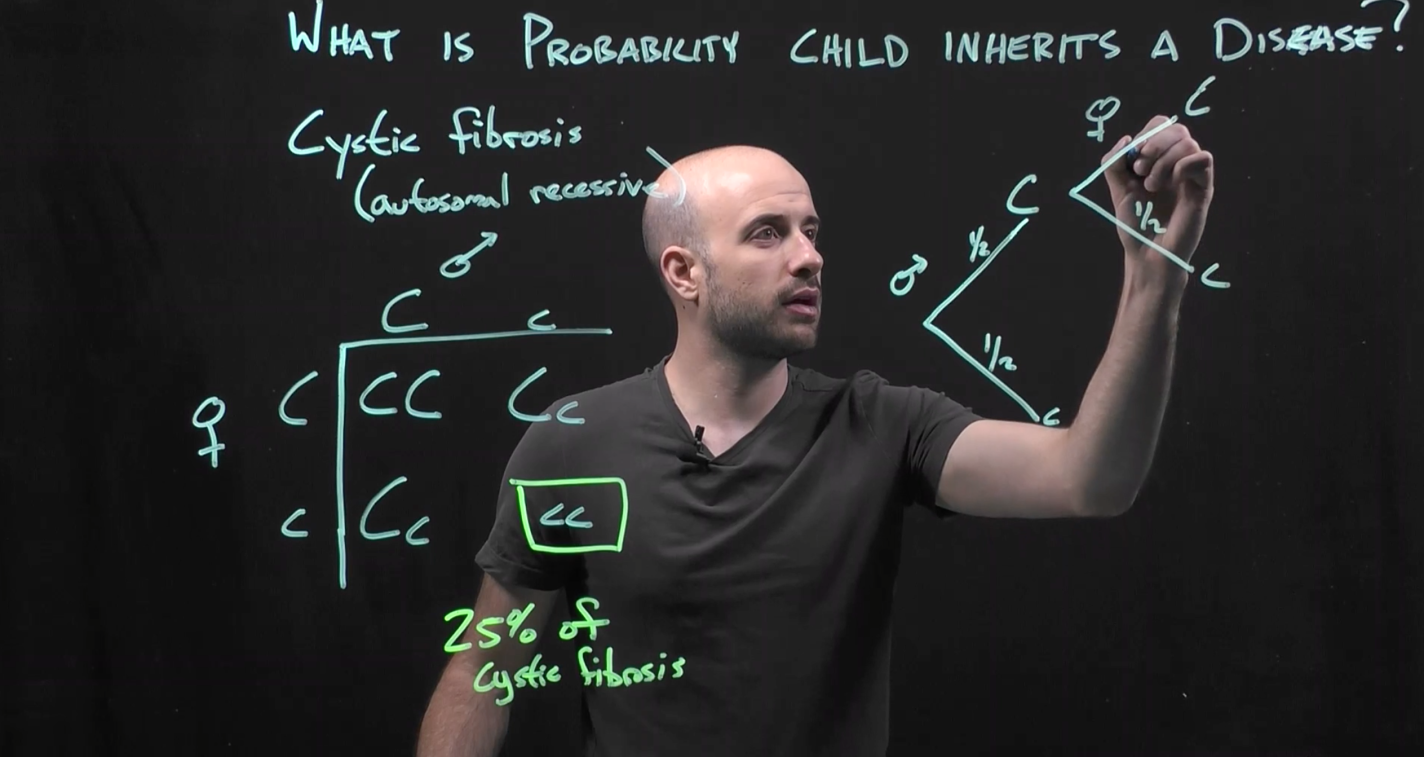 WHAT IS PROBABILITY CHILD INHERITS A DISEASE?
Cystic fibrosis
(autosomal recessive)
♂
C c
♀ C CC Cc
c Cc cc
25% of
cystic fibrosis
♂ 1/2 C
1/2 c
♀ C
1/2 c